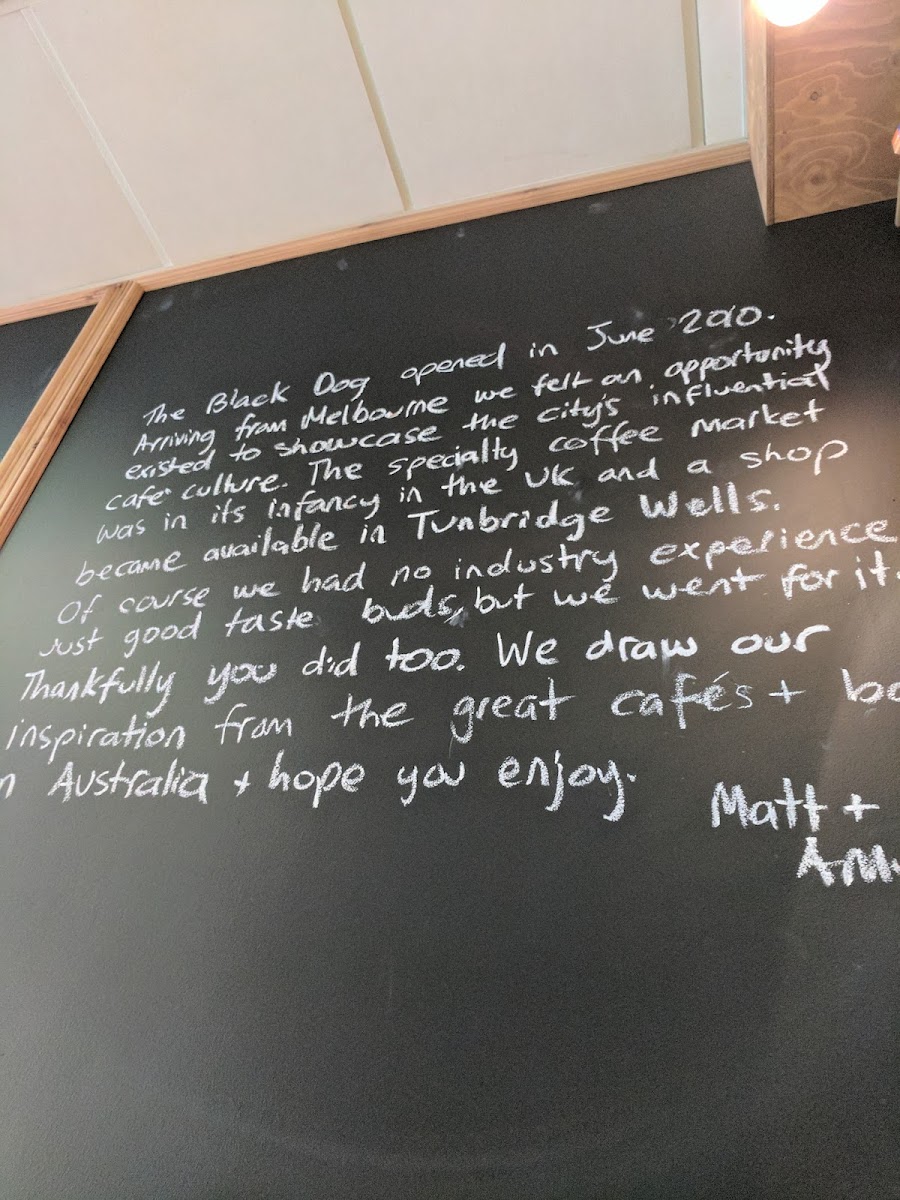 The Black Dog opened in June 2010.
Arriving from Melbourne we felt an opportunity
existed to showcase the city's influential
cafe culture. The specialty coffee market
was in its infancy in the UK and a shop
became available in Tunbridge Wells.
Of course we had no industry experience
just good taste buds, but we went for it.
Thankfully you did too. We draw our
inspiration from the great cafés +
Australia + hope you enjoy.
Matt +